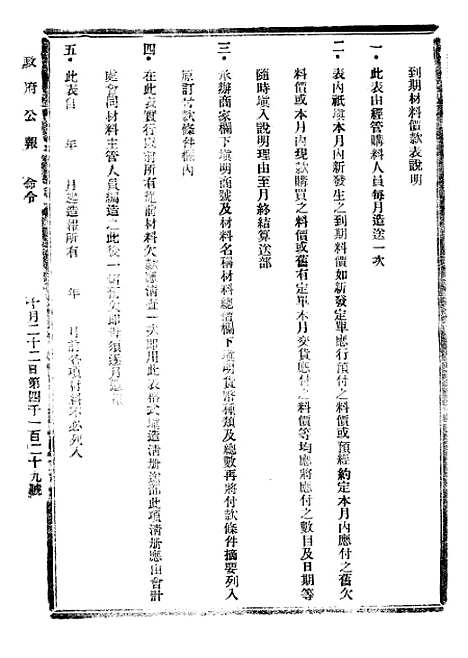 到期材料價款表說明
一・此表由經管購料人員每月造送一次
二・表內祇塡本月內新發生之到期料價如新發定單應行預付之料價或預經約定本月內應付之舊欠
料價或本月內現款購買之料價或舊有定單本月交貨應付之料價等均應將應付之數目及日期等
隨時塡入說明理由至月終結算送部
三・承辦商家欄下塡明商號及材料名稱材料總價欄下塡明貨幣種類及總數再將付款條件摘要列入
原訂付款條件欄內
四・在此表實行以前所有從前材料欠款應淸查一次卽用此表格式塡造淸册送部此項淸册應由會計
處會同材料主管人員編造之此後一切舊欠卽
五・此表自 年 月起造報所有 年 月前各項材料不必列入
政府公報 命令
十月二十二日第四千一百二十九號